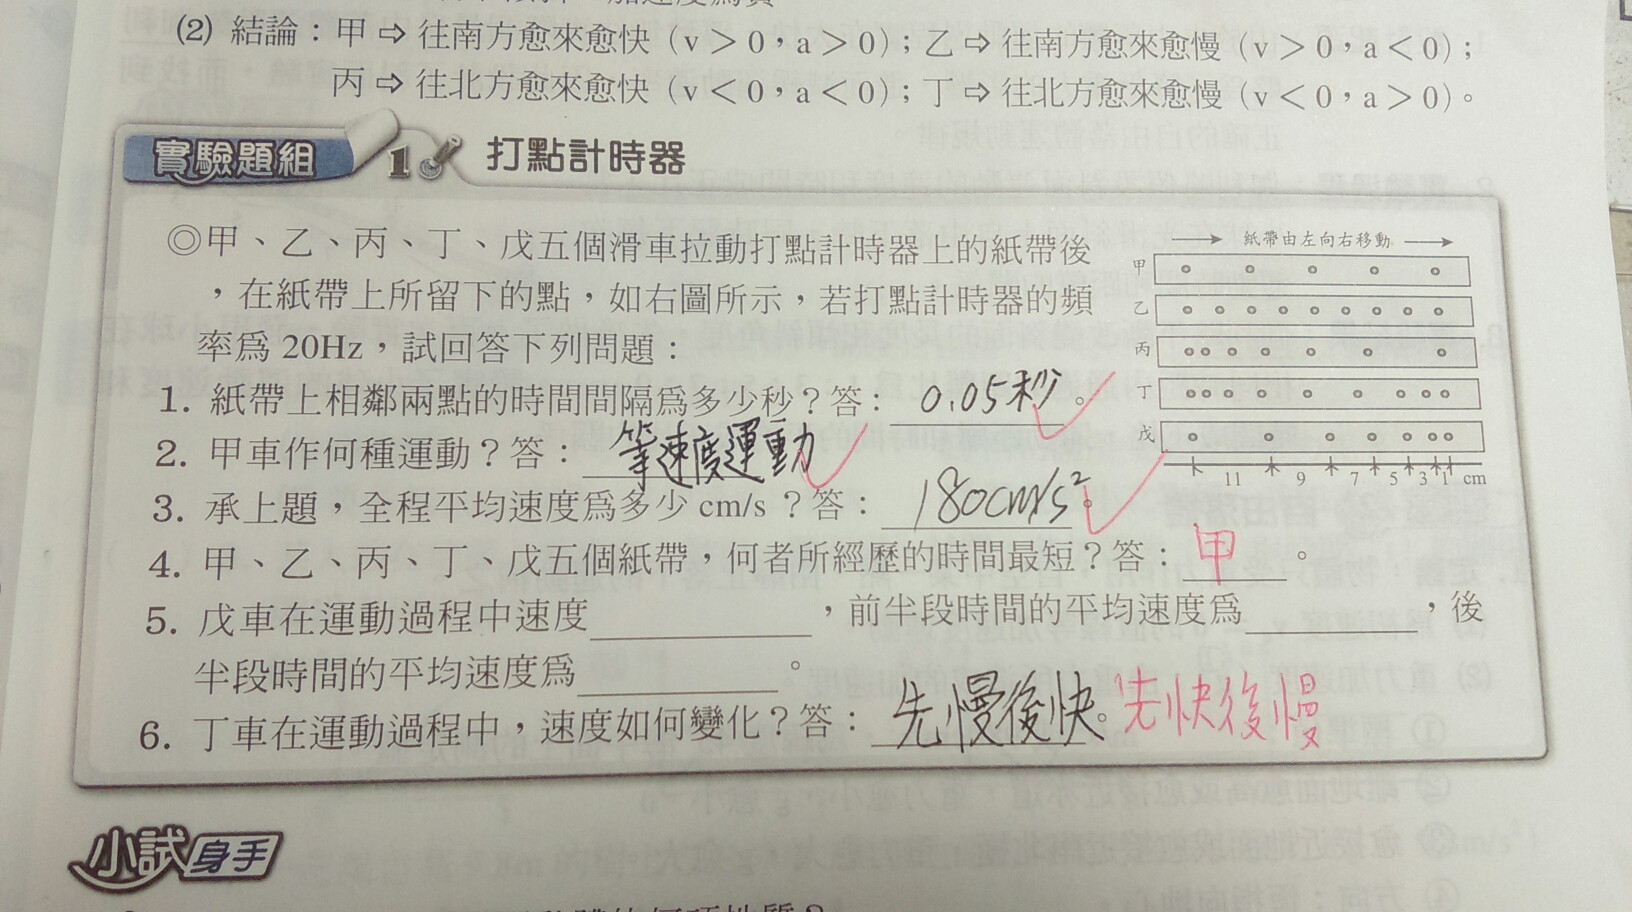 (2) 結論：甲 ⇨ 往南方愈來愈快（v＞0，a＞0）；乙 ⇨ 往南方愈來愈慢（v＞0，a＜0）；
丙 ⇨ 往北方愈來愈快（v＜0，a＜0）；丁 ⇨ 往北方愈來愈慢（v＜0，a＞0）。
實驗題組 1 打點計時器
◎甲、乙、丙、丁、戊五個滑車拉動打點計時器上的紙帶後
，在紙帶上所留下的點，如右圖所示，若打點計時器的頻
率為 20Hz，試回答下列問題：
紙帶由左向右移動
甲
乙
丙
丁
戊
11 9 7 5 3 1 cm
1. 紙帶上相鄰兩點的時間間隔為多少秒？答：0.05秒。
2. 甲車作何種運動？答：等速度運動
3. 承上題，全程平均速度為多少 cm/s ？答：180cm/s²。
4. 甲、乙、丙、丁、戊五個紙帶，何者所經歷的時間最短？答：甲。
5. 戊車在運動過程中速度＿＿＿＿，前半段時間的平均速度為＿＿＿＿，後
半段時間的平均速度為＿＿＿＿。
6. 丁車在運動過程中，速度如何變化？答：先慢後快。先快後慢
小試身手